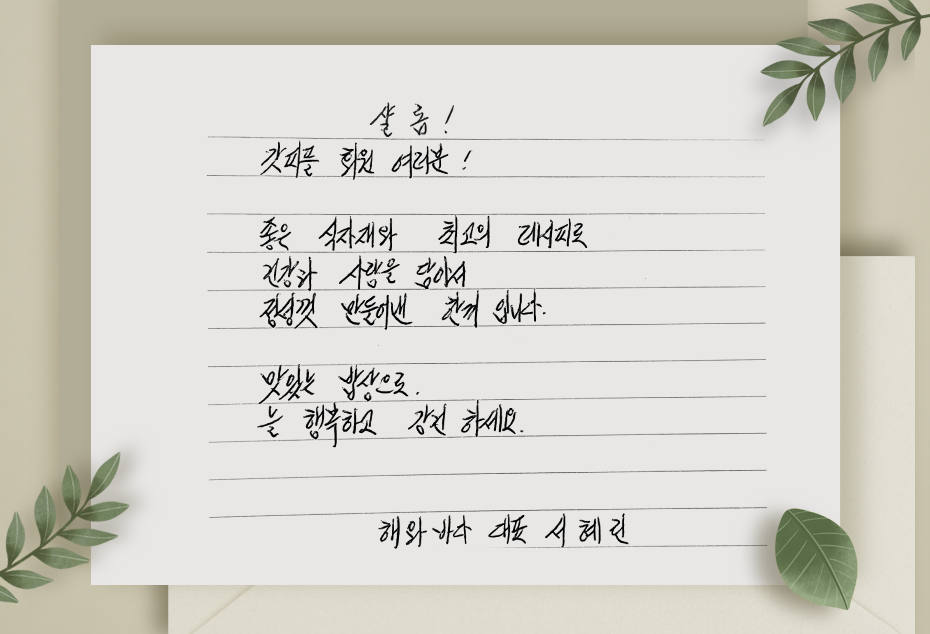 샬롬!
갓피플 회원 여러분!
좋은 식자재와 최고의 레시피로
건강과 사랑을 담아서
정성껏 만들어낸 한끼 입니다.
맛있는 밥상으로.
늘 행복하고 강건 하세요.
해와바다 대표 서혜린